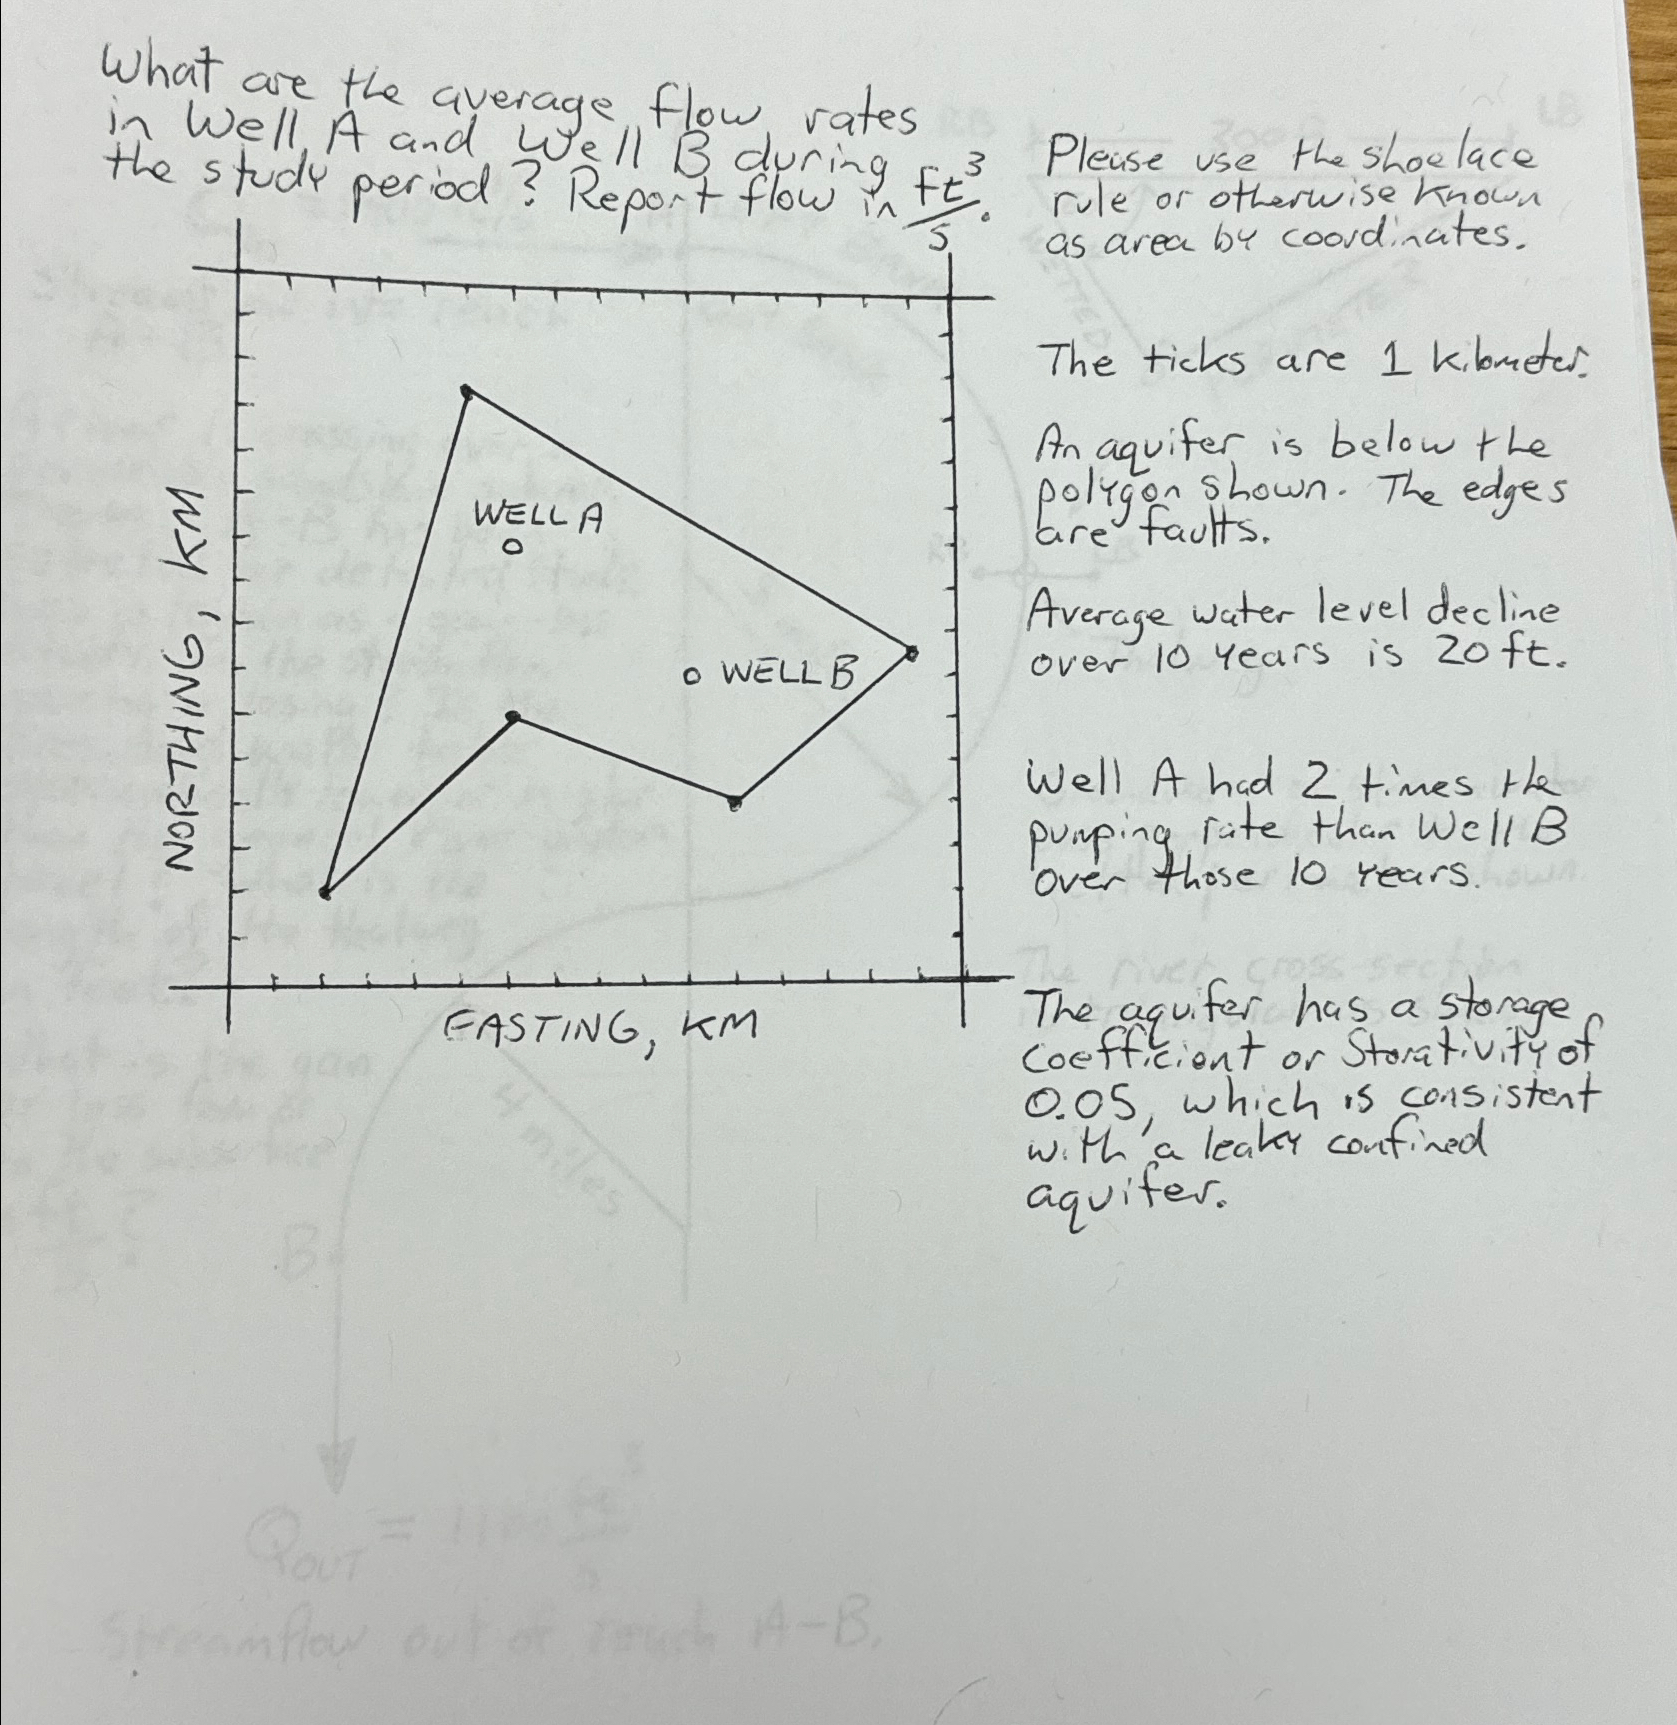 What are the average flow rates
in Well A and Well B during
the study period? Report flow in ft³/s.
Please use the shoelace
rule or otherwise known
as area by coordinates.
The ticks are 1 kilometer.
An aquifer is below the
polygon shown. The edges
are faults.
Average water level decline
over 10 years is 20 ft.
Well A had 2 times the
pumping rate than Well B
over those 10 years.
The aquifer has a storage
coefficient or Storativity of
0.05, which is consistent
with a leaky confined
aquifer.
WELL A
WELL B
NORTHING, KM
EASTING, KM
4 miles
B
QOUT = 1100
Streamflow out of reach A-B.